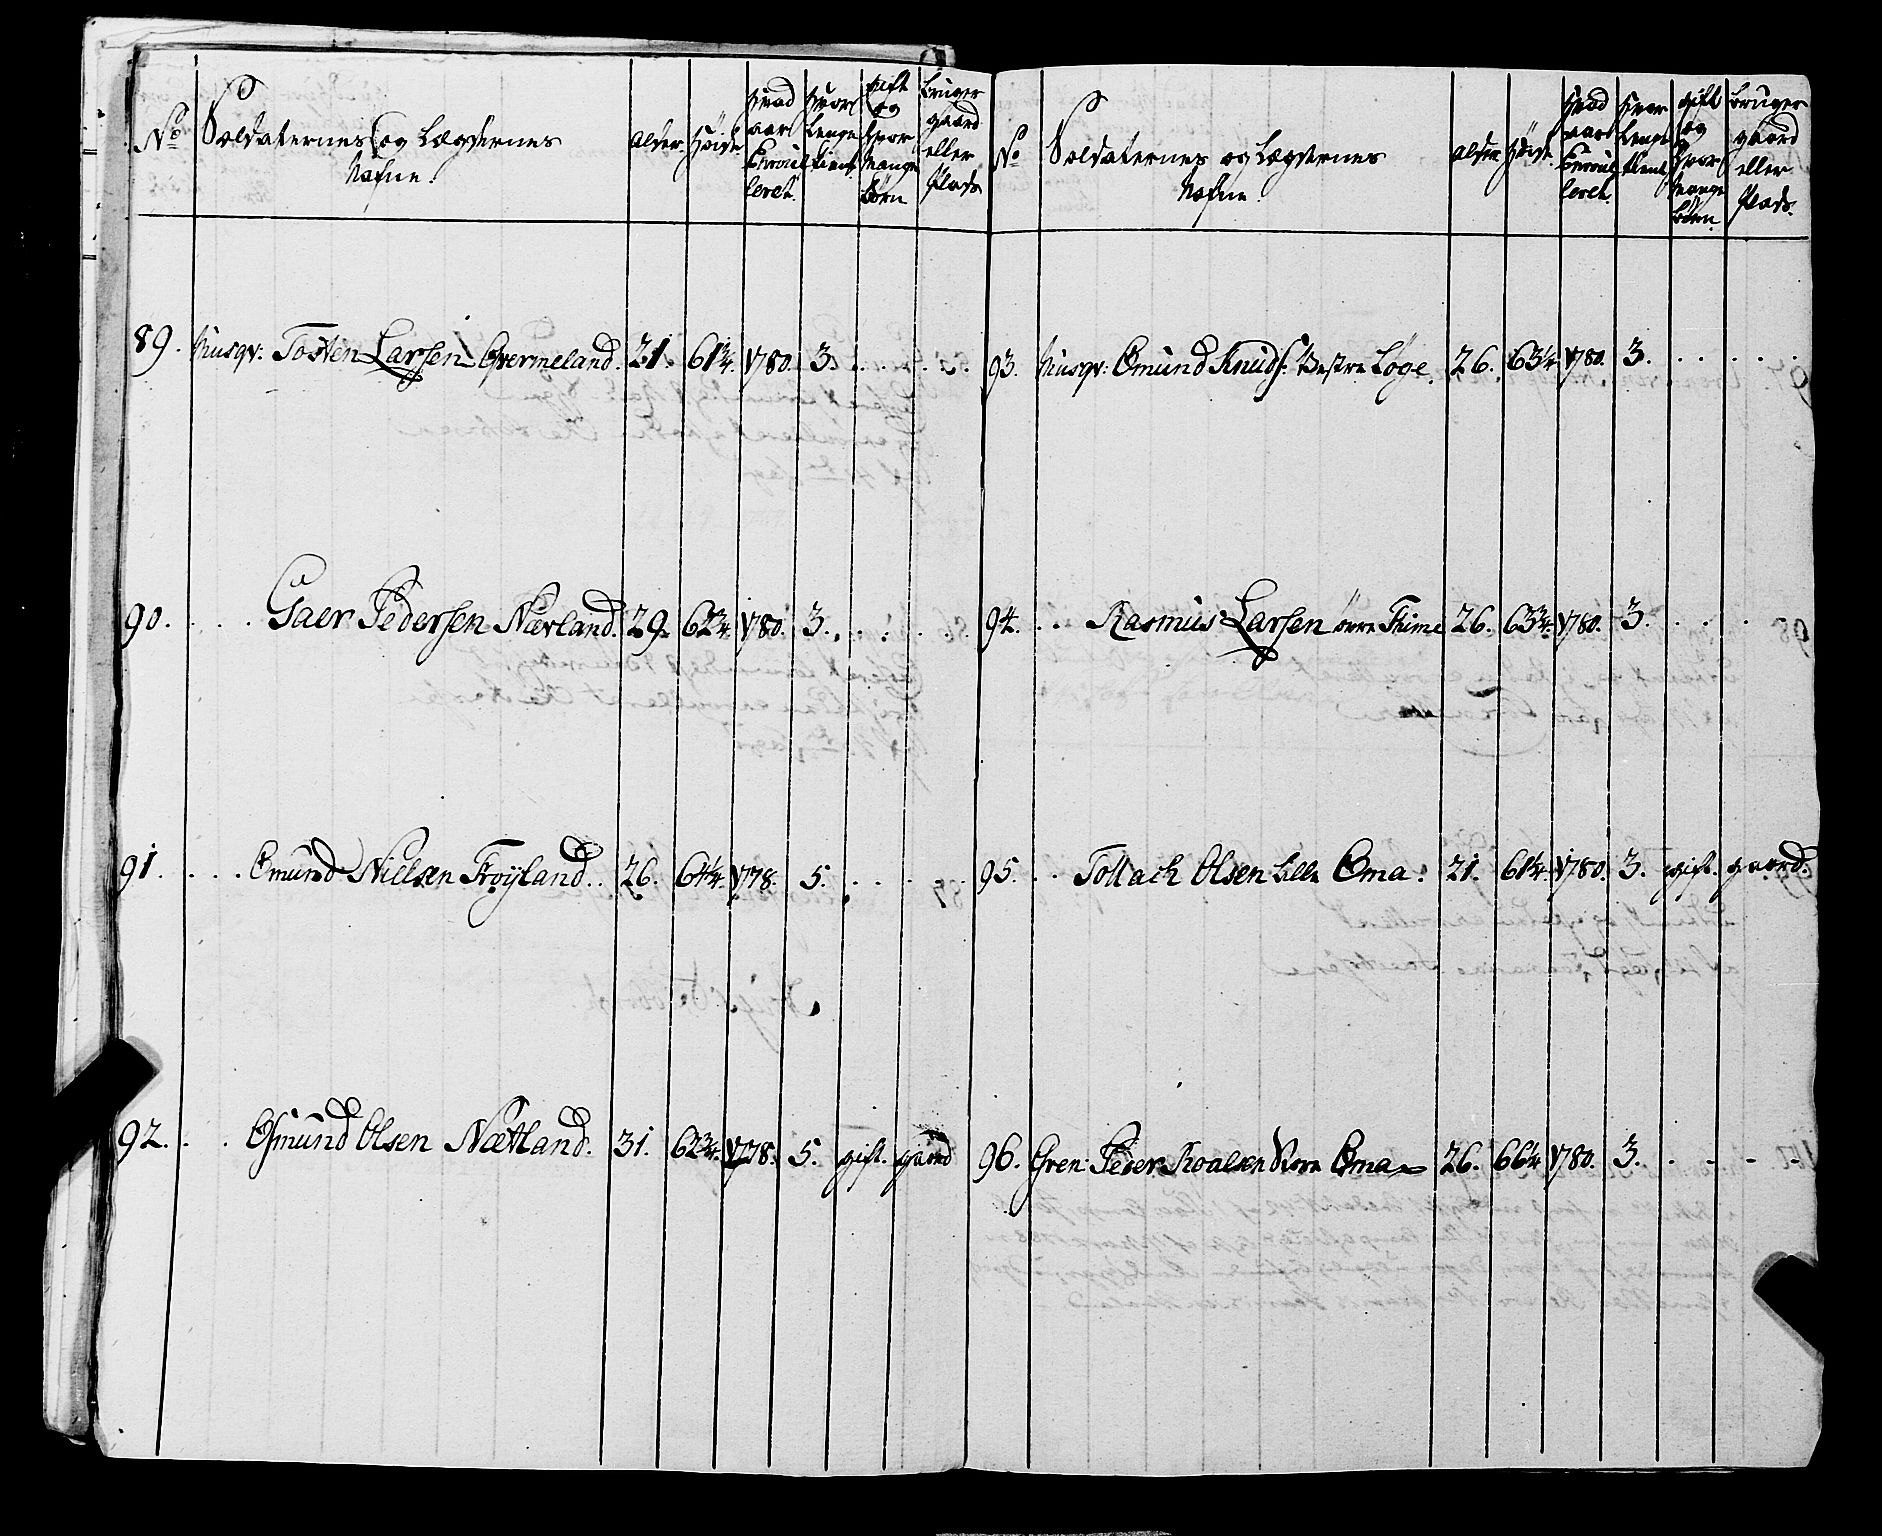 No
Soldaternes og Lægdernes
Nafne.
alder.
Høide.
Hvad
aar
Enroul-
leret.
Hvor
Lenge
tient.
gift
og
Hvor
Mange
Børn
Bruger
gaard
eller
Plads
89. Musqv: Tosten Larsen Qvermeland. 21. 61¾. 1780. 3. . . .
90. . . . Gaer Pedersen Nærland. 29. 62¾. 1780. 3. . . .
91. . . . Omund Nielsen Frøyland. . 26. 64¼. 1778. 5. . . .
92. . . Osmund Olsen Nætland. 31. 62¾. 1778. 5. gift. gaard
No
Soldaternes og Lægdernes
Nafne.
alder.
Høide.
Hvad
aar
Enroul-
leret.
Hvor
Lenge
tient
gift
og
Hvor
Mange
Børn.
Bruger
gaard
eller
Plads.
93. Musqv: Omund Knuds: Vestre Løge. 26. 63¼. 1780. 3. . . .
94. . . Rasmus Larsen øvre Thime 26. 63¾. 1780. 3. . . .
95. . . Tollach Olsen Lille Oma. 21. 61¼. 1780. 3. gift. gaard.
96. Gren: Peder Roalsen Store Oma 26. 66¼. 1780. 3. . - -